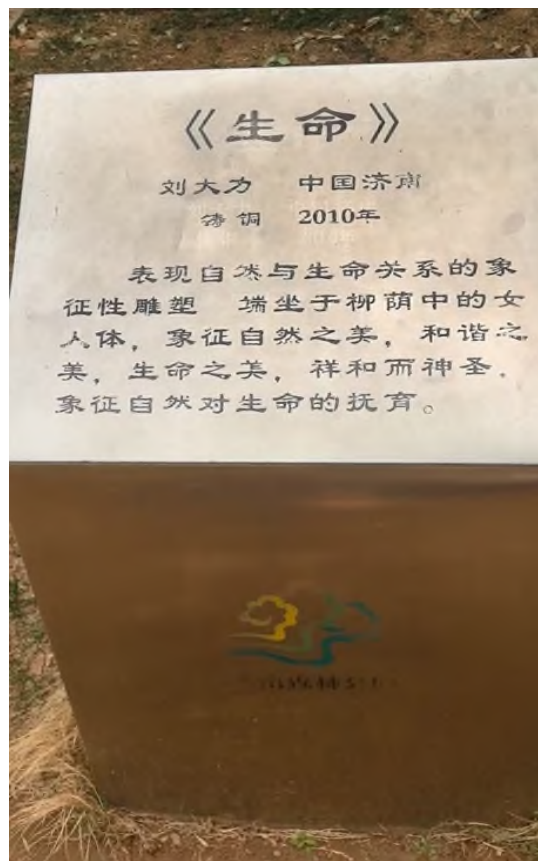 《生命》
刘大为 中国济南
铸铜 2010年
表现自然与生命关系的象
征性雕塑 端坐于柳荫中的女
人体，象征自然之美，和谐之
美，生命之美，祥和而神圣.
象征自然对生命的抚育。